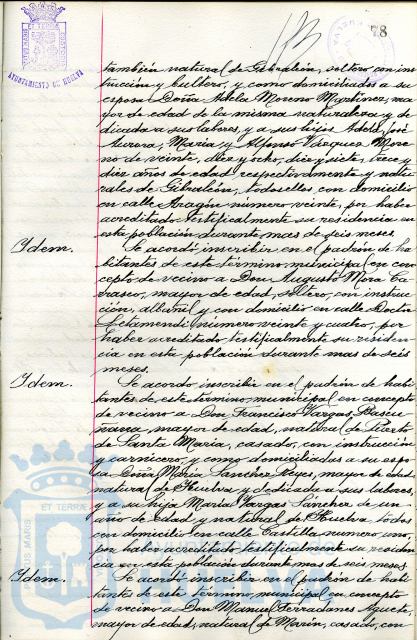 78
AYUNTAMIENTO DE HUELVA
también natural de Gibraleón, soltero con ins-
trucción y bultero, y como domiciliados a su
esposa Doña Adela Moreno Martínez, ma-
yor de edad de la misma naturaleza y de-
dicada a sus labores, y a sus hijos Adela, José
Aurora, Maria, y Alfonso Vázquez More-
no de veinte, diez y ocho, diez y siete, trece y
diez años de edad respectivamente y natu-
rales de Gibraleón, todos ellos, con domicilio
en calle Aragón número veinte, por haber
acreditado testificalmente su residencia en
esta población durante mas de seis meses.
Idem. Se acordó inscribir en el padrón de ha-
bitantes de este término municipal en con-
cepto de vecino a Don Augusto Mora Ca-
rrasco, mayor de edad, soltero, con instruc-
ción, albañil y con domicilio en calle Doctor
Letamendi número veinte y cuatro, por
haber acreditado testificalmente su residen-
cia en esta población durante mas de seis
meses.
Idem. Se acordo inscribir en el padrón de habi-
tantes de este término municipal en concepto
de vecino a Don Francisco Vargas
mayor de edad, natural de Puerto
de Santa Maria, casado, con instrucción
y carnicero, y como domiciliadas a su espo-
sa Doña María Sanchez Reyes, mayor de edad
natural de Huelva y dedicada a sus labores
y a su hija María Vargas Sánchez de un
año de edad y natural de Huelva todos
con domicilio en calle Castilla numero uno,
por haber acreditado testificalmente su residen-
cia en esta población durante mas de seis meses.
Idem. Se acordó inscribir en el padrón de habi-
tantes de este término municipal en concepto
de vecino a Don Manuel Ferradanes
mayor de edad, natural de Marín, casado, con
PORTUS MARIS ET TERRAE